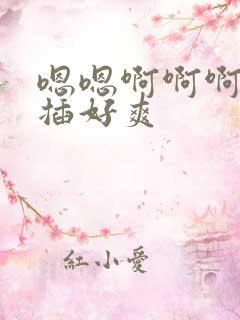 嗯嗯啊啊啊
插好爽
紅小愛